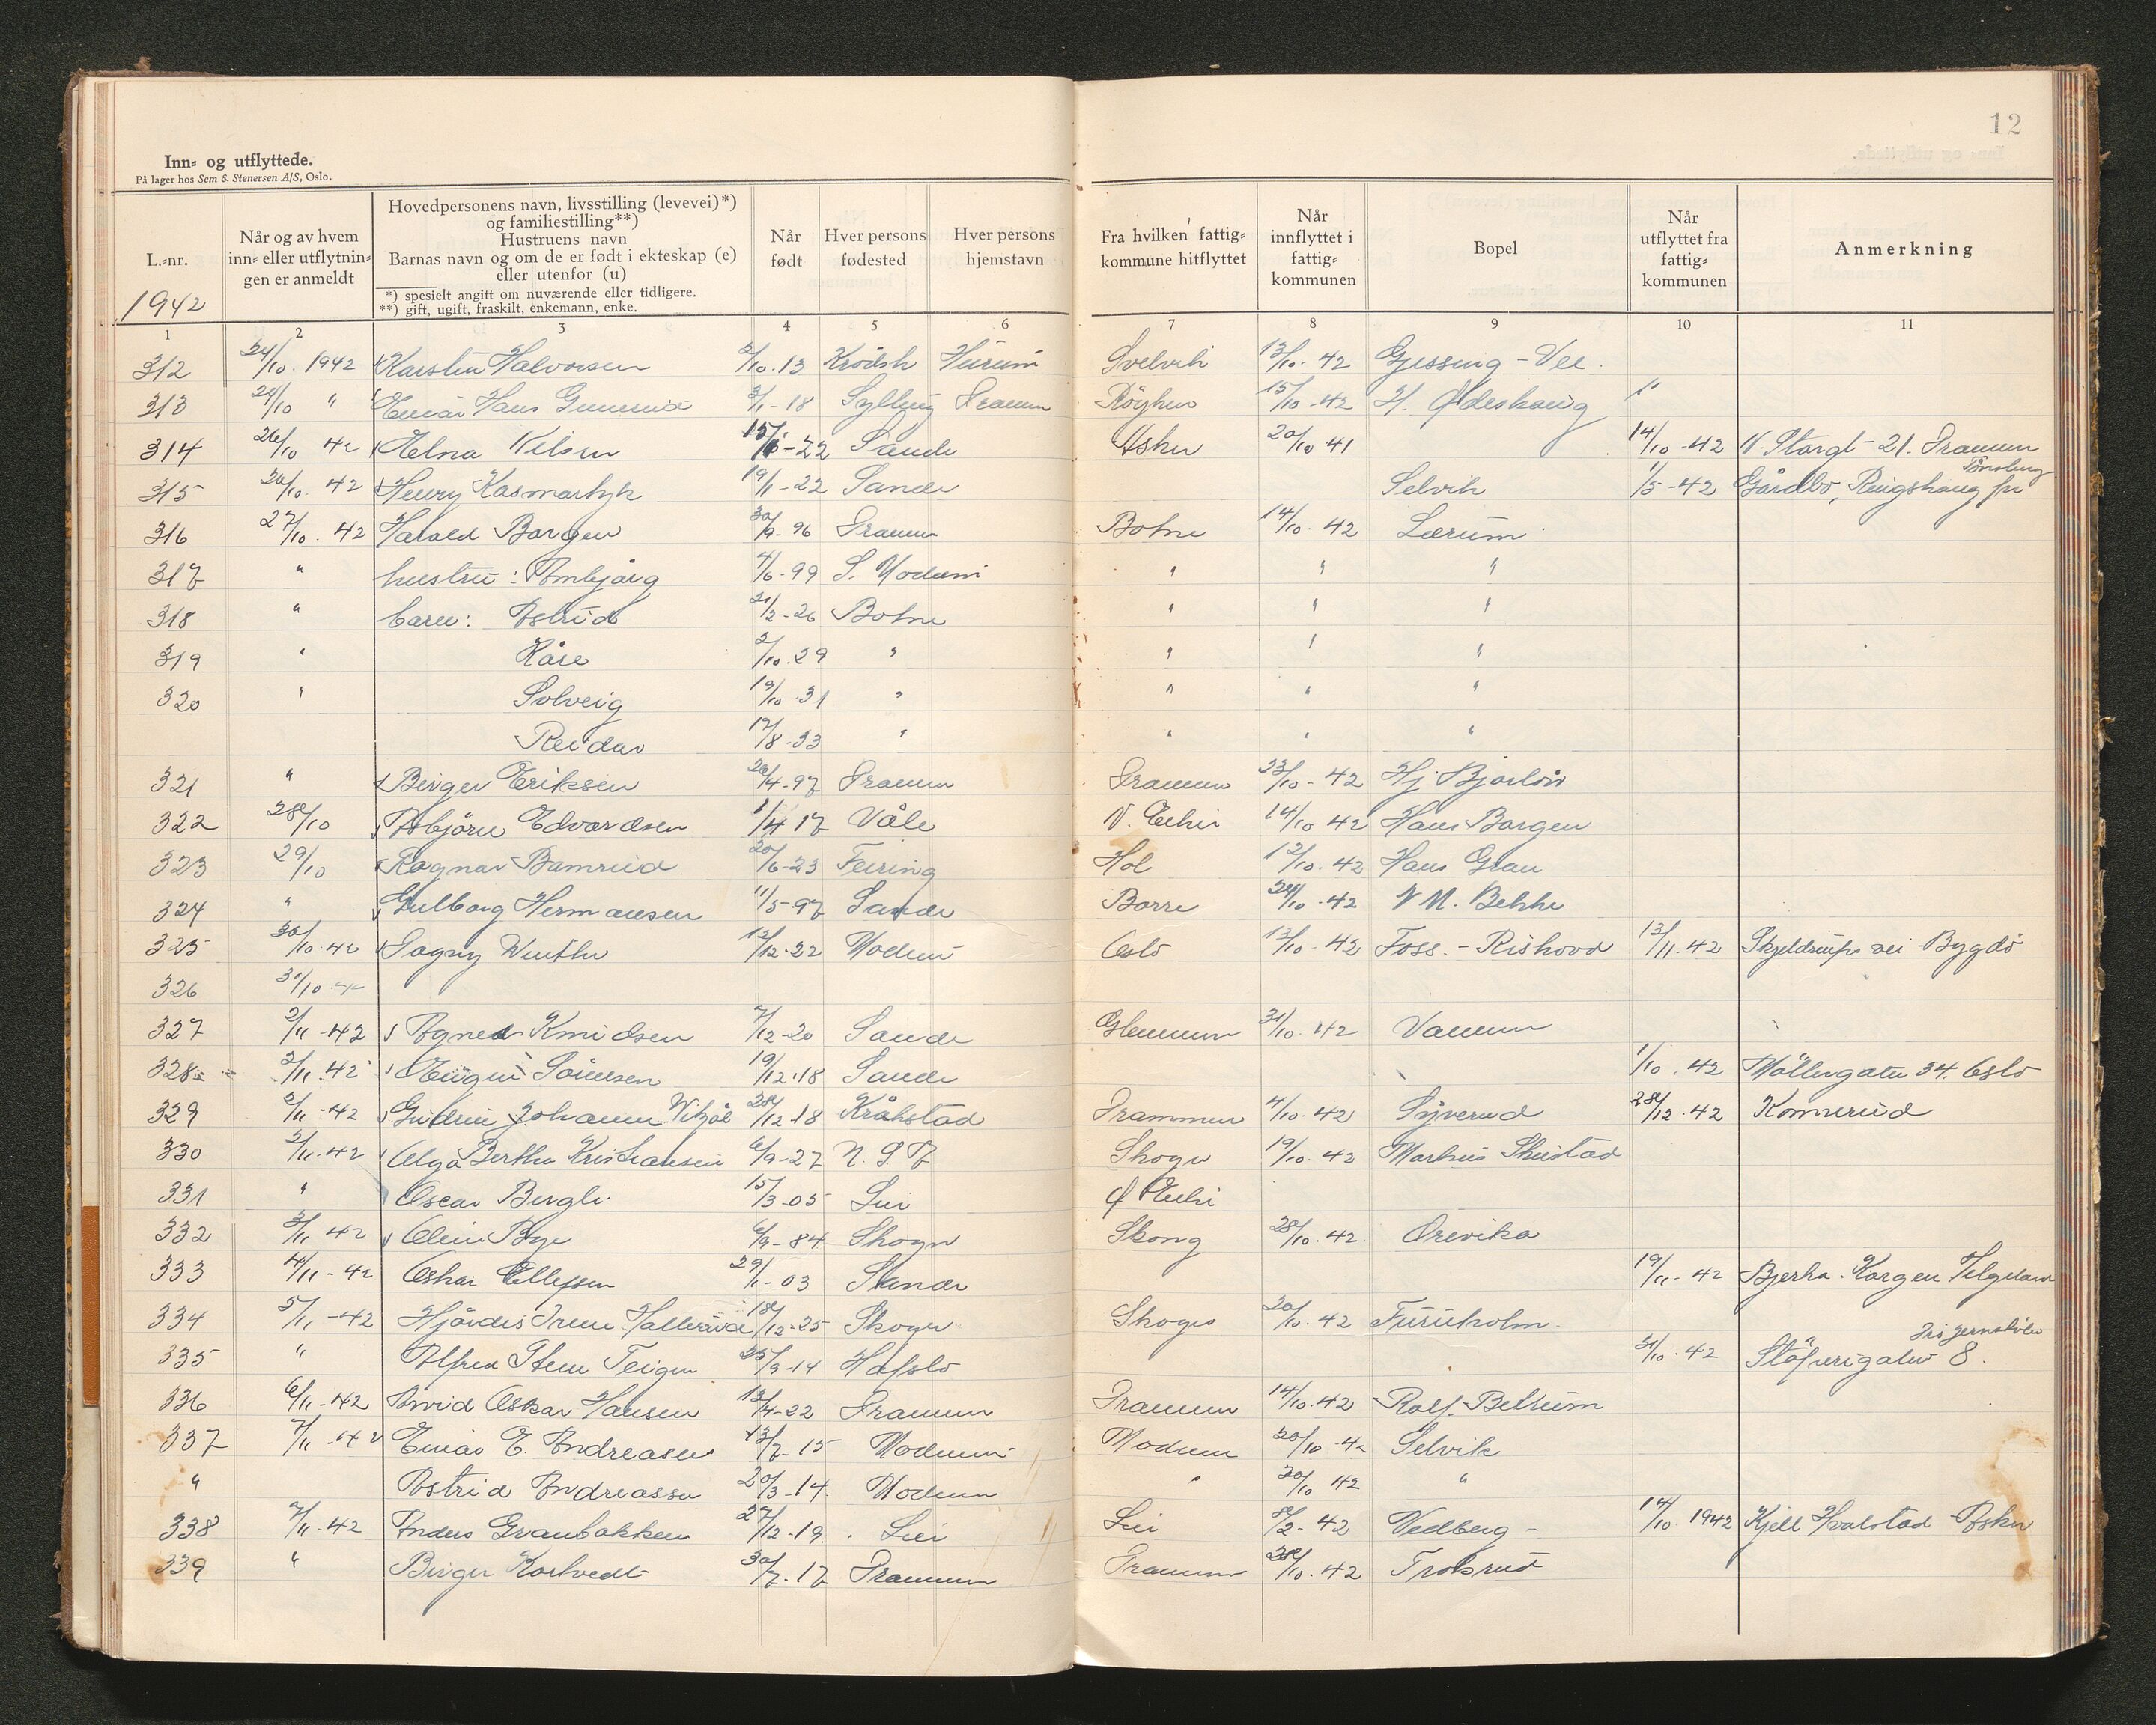 12
Inn- og utflyttede.
På lager hos Sem & Stenersen A/S, Oslo.
L.-nr. 1942
Når og av hvem inn- eller utflytningen er anmeldt
Hovedpersonens navn, livsstilling (levevei)*) og familiestilling**)
Hustruens navn
Barnas navn og om de er født i ekteskap (e) eller utenfor (u)
*) spesielt angitt om nuværende eller tidligere.
**) gift, ugift, fraskilt, enkemann, enke.
Når født
Hver persons fødested
Hver persons hjemstavn
Fra hvilken fattigkommune hitflyttet
Når innflyttet i fattigkommunen
Bopel
Når utflyttet fra fattigkommunen
Anmerkning
1 2 3 4 5 6 7 8 9 10 11
312 24/10. 1942 Karsten Halvorsen 2/10.13 Krødsh Hurum Svelvik 13/10. 42 Gjessing - Vee.
313 24/10 " Einar Hans 3/1-18 Sylling Drammen Röyken 15/10-42 H. Ødeskaug "
314 26/10 42 Elna Nilsen 22 Sande Asker 20/10 41 14/10-42 N. Storgt-21. Drammen
315 42 Henry Kasmartyk 19/1-22 Sande Selvik 1/5-42 Gårdbo, Ringshaug pr Tönsberg
316 27/10. 42 Harald Borgen 30/9-96 Drammen Botne 14/10. 42 Lærum
317 " hustru: 4/6-99 S. Modum " " "
318 " barn: Astrid 21/2-26 Botne " " "
319 " Kåre 2/10.29 " " " "
320 " Solveig 19/10.31 " " " "
Reidar 17/8-33 " " " "
321 " Birger Eriksen 26/4-97 Drammen Drammen 23/10-42 Hj.
322 28/10 Asbjörn Edvardsen 1/4 17 Våle N. Eiker 14/10 42 Hans Borgen
323 29/10 Ragnar Bamrud 20/6-23 Feiring Hol 12/10.42 Hans Gran
324 " Gulborg Hermansen 11/5-97 Sande Borre 24/10-42 N M. Bekke
325 30/10-42 Dagny 12/12-22 Modum Oslo 13/10-42 Foss.-Rishovd 13/11.42 vei Bygdö
326 31/10
327 2/11-42 Agnes Knudsen 7/12-20 Sande Glemmen 31/10.42
328 2/11.42 19/12.18 Sande 1/10.42 Möllergaten 34. Oslo
329 2/11-42 Gudrun Johanne 28/12-18 Kråkstad Drammen 4/10-42 Syverud 28/12.42 Konnerud
330 2/11-42 Olga Berthe Kristiansen 6/9-27 Skoger 19/10.42 Markus Skistad
331 " Oscar Bergli 15/3-05 Lier Ø Eiker
332 3/11 42 Bye 6/9-84 Skoger Skoug 28/10.42 Orevika
333 4/11-42 Oskar Ellefsen 29/1-03 Sande 19/11-42 Bjerka. Korgen Helgeland
334 5/11-42 Hjördis Irene Hallerud 18/12-25 Skoger Skoger 20/10.42 Furuholm
335 " Alfred Sten Teigen 25/9-14 Hafslo 31/10.42 Stöperigaten 8.
336 6/11-42 Arvid Oskar Hansen 13/4-22 Drammen Drammen 14/10.42 Rolf Bettum
337 7/11-42 Einar E. Andreasen 13/7-15 Modum Modum 20/10-42 Selvik
" Astrid Andreassen 20/3-14 Modum " 20/10 42 "
338 7/11-42 Anders Granbakken 27/12-19. Lier Lier 8/2-42 Vedberg - 14/10.1942 Kjell Hvalstad Asker
339 " Birger Kortvedt 30/7-17 Drammen Drammen 28/10.42 Trolsrud